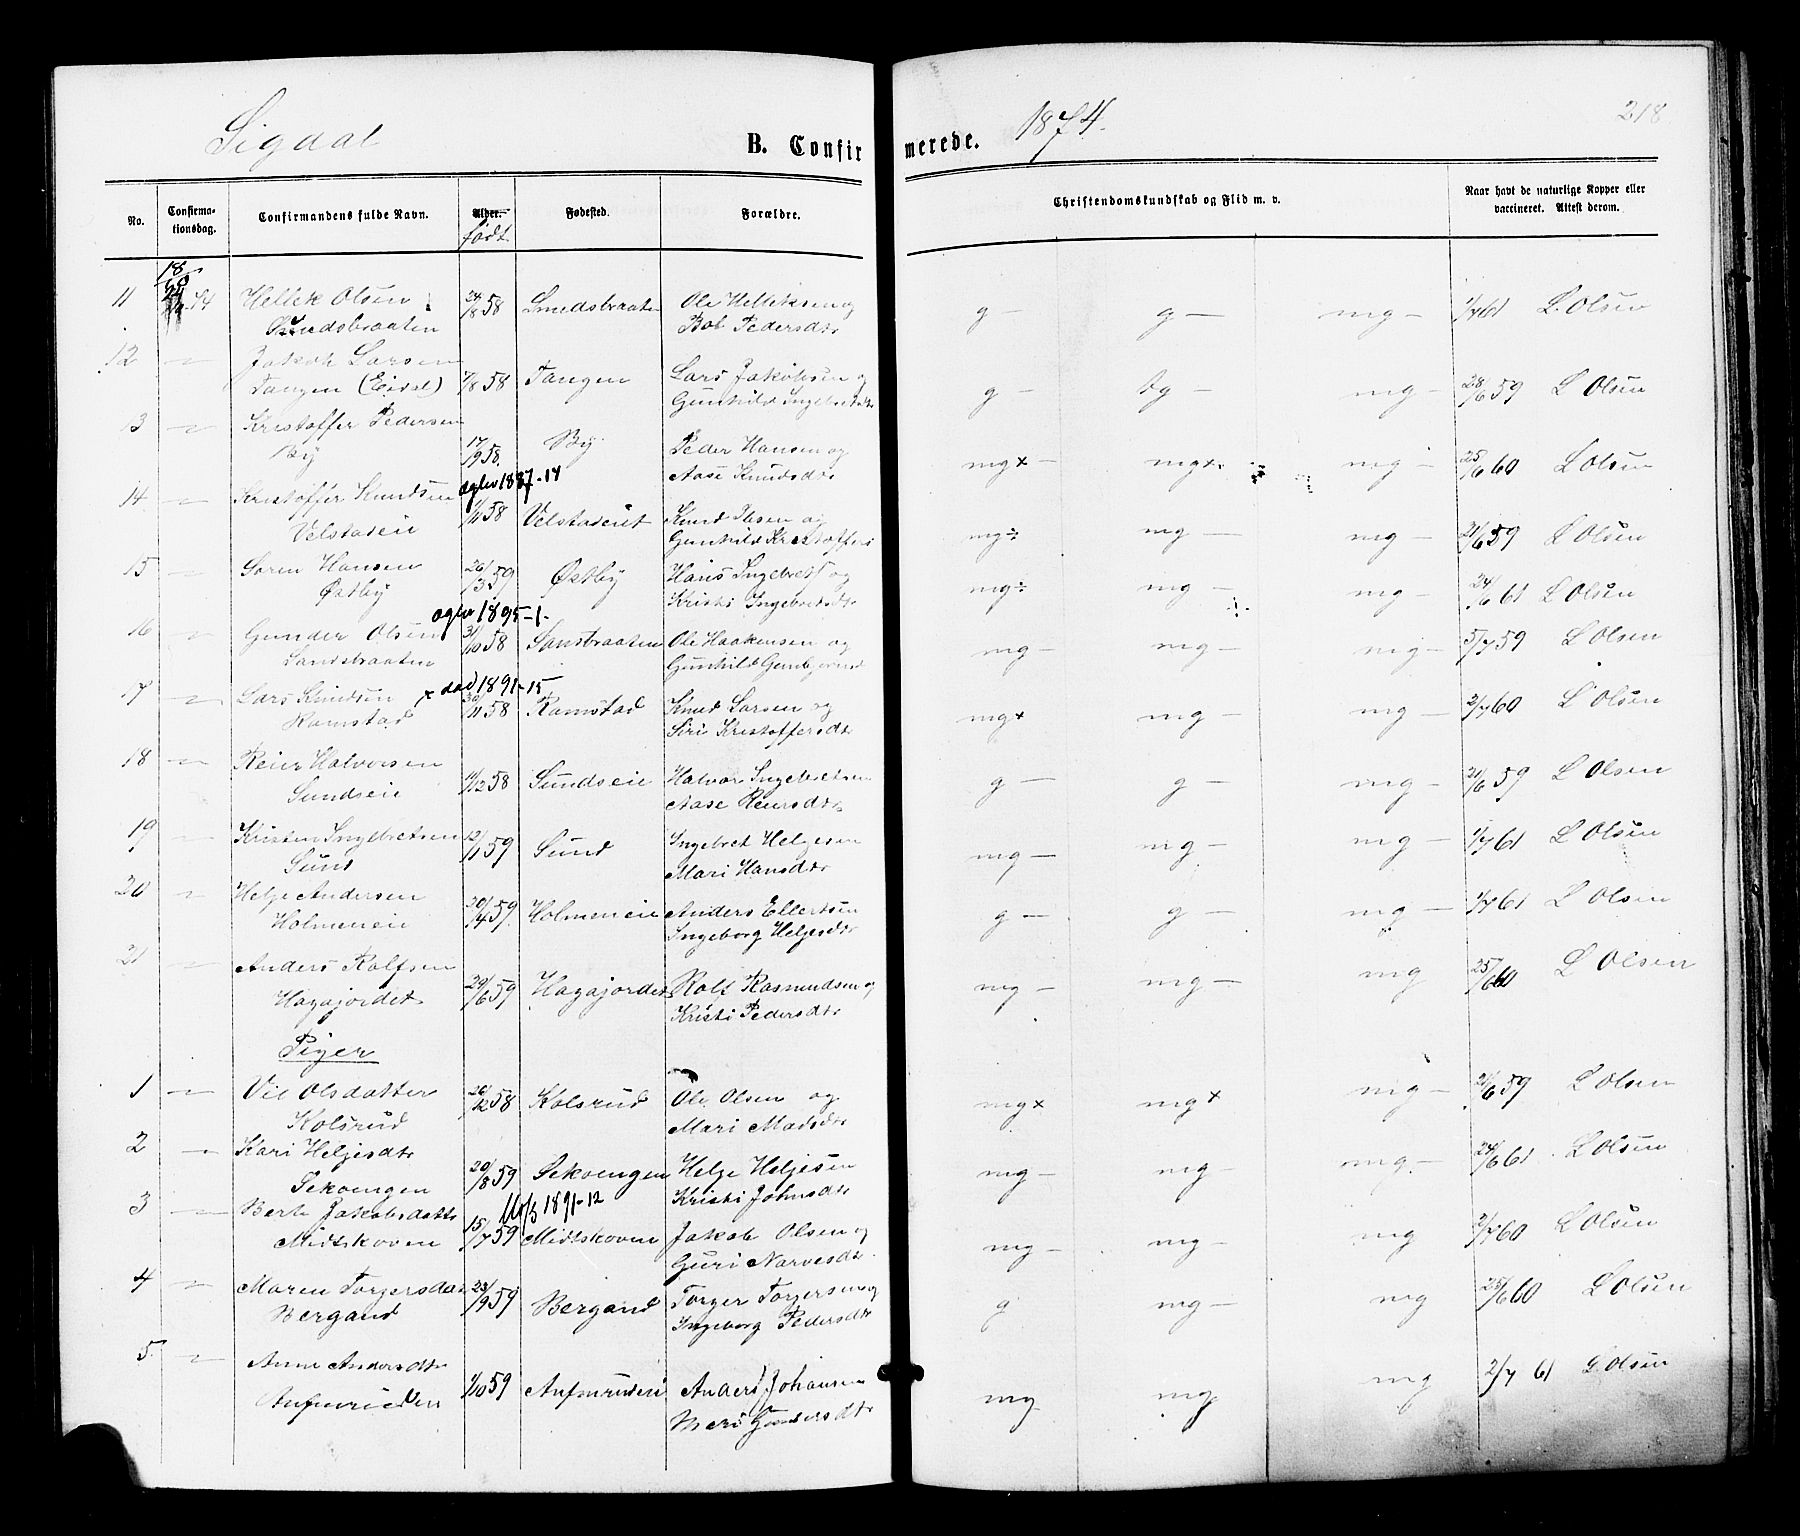 Sigdal
B. Confirmerede.
1874.
218.
No.
Confirmationsdag.
Confirmandens fulde Navn.
Alder.
født
Fødested.
Forældre.
Christendomskundskab og Flid m. v.
Naar havt de naturlige Kopper eller vaccineret. Attest derom.
11 Hellek Olsen 24/8 58 Smedsbraaten Ole Helleksen og g — g — mg — 1/7 61 L. Olsen
Smedsbraaten Bob Pedersdtr
12 — Jakob Larsen
Tangen (Eidal) 7/8 58 Tangen Lars Jakobsen og g — tg — mg — 28/6 59 L Olsen
Gunhild Ingebretsdtr
13 — Kristoffer Pedersen
By 17/9 58. By. Peder Hansen og mg+ — mg+. mg — 25/6 60 L Olsen
Aase Knudsdtr
aglv 1887-14
14 — Kristoffer Knudsen
Velstadeie 1/11 58 Velstadeiet Knud Ibsen og mg÷ mg — mg — 21/6 59 L Olsen
Gunhild Kristoffersd
15 — Søren Hansen
Østby 26/3 59 Østby Hans Ingebretsen og mg÷ mg — mg — 24/6 61 L Olsen
Kristi Ingebretsdtr
aglv 1895-1.
16 — Gunder Olsen
Sandsbraaten 31/10 58 Sandsbraaten Ole Haakensen og mg — mg — mg — 5/7 59 L Olsen
Gunhild Gunbjørnsd
17 — Lars Knudsen x død 1891-15
Ramstad 30/11 58 Ramstad Knud Larsen og mg+ mg — mg — 2/7 60 L Olsen
Siri Kristoffersdtr
18 — Reier Halvorsen
Sundseie 11/12 58 Sundseie Halvor Ingebretsen g — g — mg — 21/6 59 L Olsen
Aase Reiersdtr
19 — Kristen Ingebretsen
Sund 12/11 59 Sund Ingebret Helgesen mg — mg — mg — 1/7 61 L Olsen
Mari Hansdtr
20 — Helge Andersen
Holmeneie 20/4 59. Holmeneie Anders Ellertsen g — g — mg — 1/7 61 L Olsen
Ingeborg Helgesdtr
21 — Anders Rolfsen
Hagajordet 29/6 59 Hagajordet Rolf Rasmundsen og mg — mg — mg 25/6 60 L Olsen
Kristi Pedersdtr
Piger
1 — Vie Olsdatter
Kolsrud 26/12 58 Kolsrud Ole Olsen og mg+ mg+ mg — 21/6 59 L Olsen
Mari Madsdtr
2 — Kari Helgesdtr
Sekoengen 20/8 59 Sekoengen Helge Helgesen mg — mg — mg — 24/6 61 L Olsen
Kristi Johnsdtr
1891-12
3 — Berte Jakobsdatter
Midtskoven 15/7 59 Midtskoven Jakob Olsen og mg — mg — mg 2/7 60 L Olsen
Guri Narvesdtr
4 — Maren Torgersdat
Bergand 23/9 59 Bergand Torger Torgersen og g mg — mg 25/6 60 L Olsen
Ingeborg Pedersdtr
5. — Anne Andersdtr
1/10 59 Anders Johansen mg mg mg 2/7 61 L. Olsen
Mari Gundersdtr